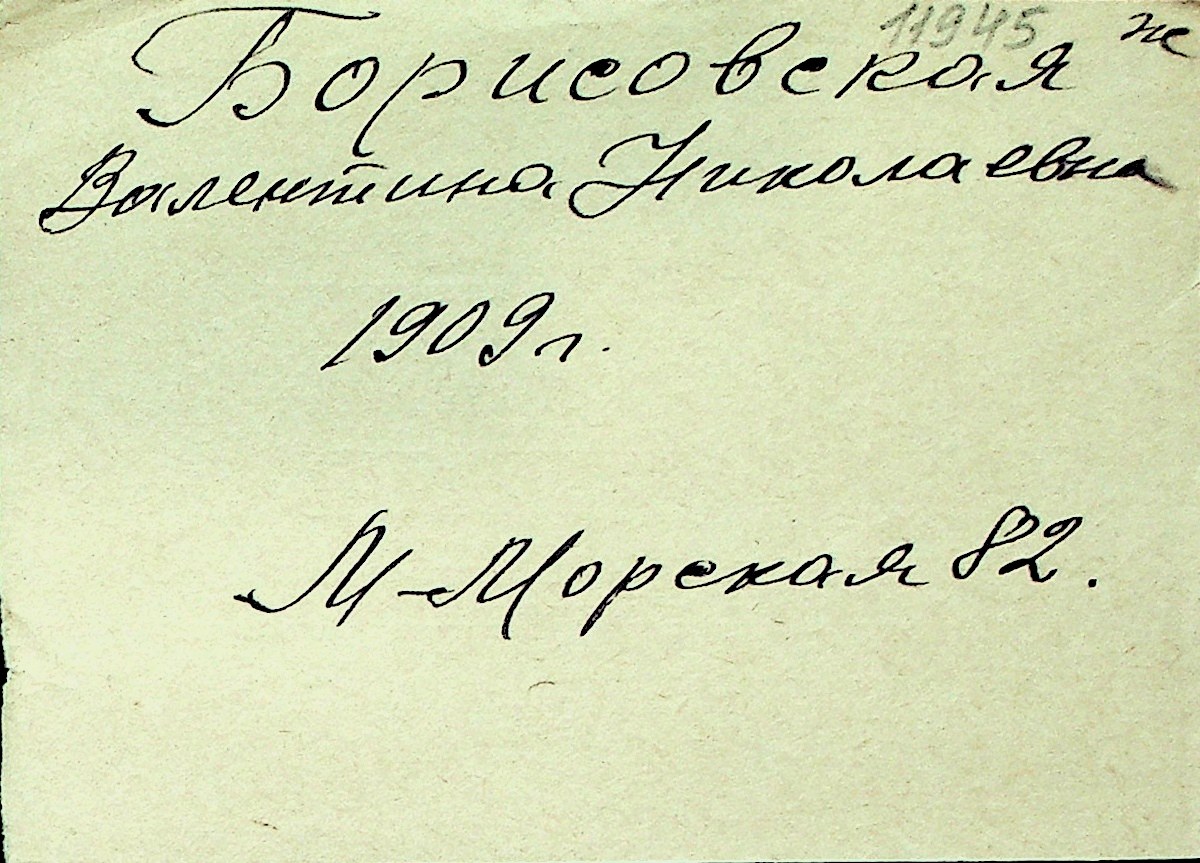 11945 ж
Борисовская
Валентина Николаевна
1909 г.
М-Морская 82.